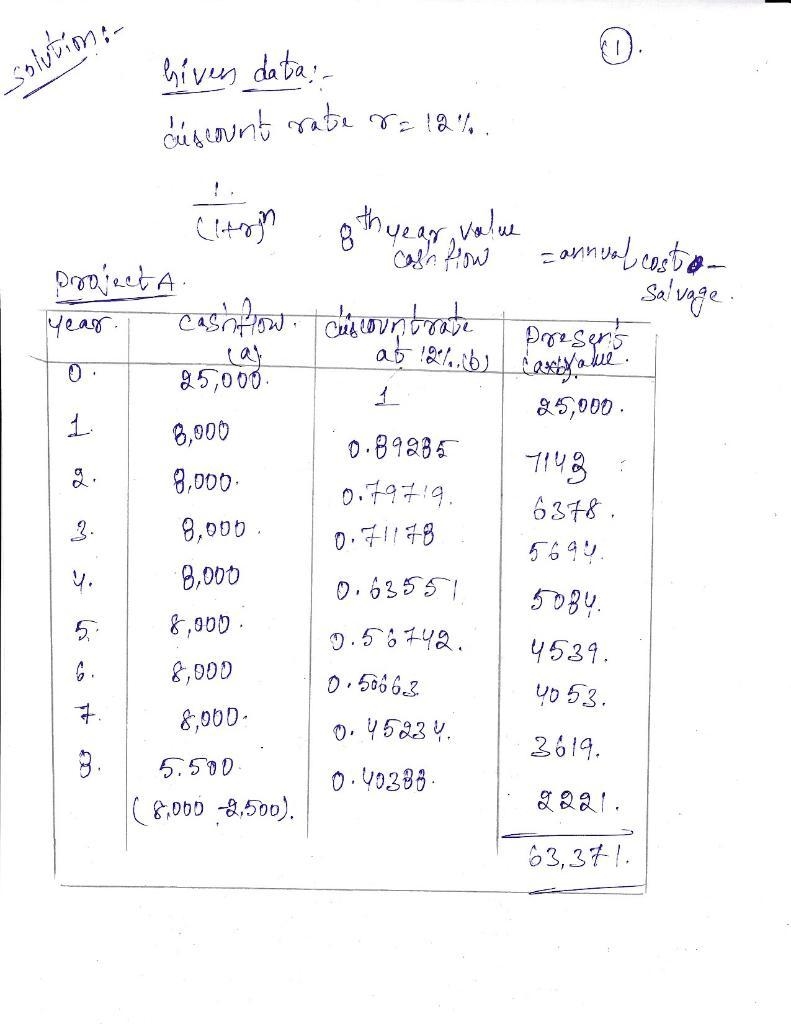 Solution:-
(1).
Given data:-
discount rate r = 12%.
1
(1+r)^n
8th year value = annual cost -
cash flow
Salvage.
Project A.
year. cashflow. discountrate Present
(a) at 12%.(b) (axb)value.
0. 25,000. 1 25,000.
1. 8,000 0.89285 7143
2. 8,000. 0.79719. 6378.
3. 8,000. 0.71178 5694.
4. 8,000 0.63551 5084.
5. 8,000. 0.56742. 4539.
6. 8,000 0.50663 4053.
7. 8,000. 0.45234. 3619.
8. 5.500 0.40388. 2221.
(8,000 -2,500).
63,371.